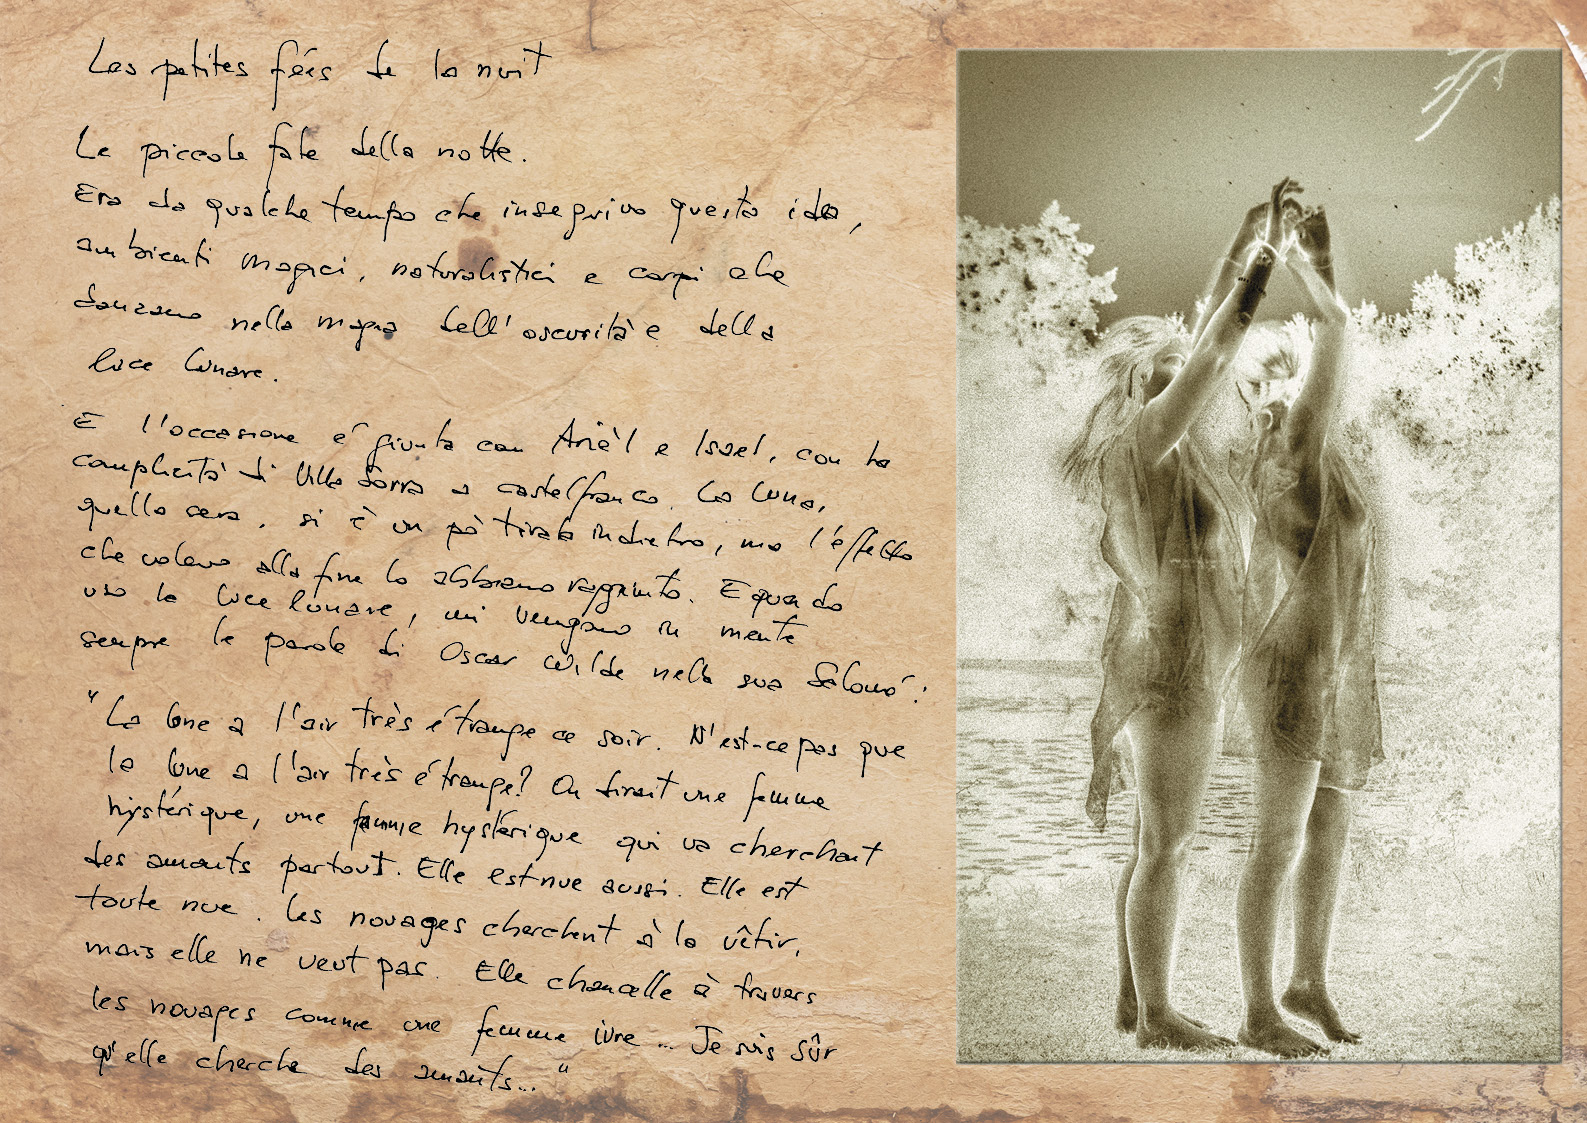 Les petites fées de la nuit
Le piccole fate della notte.
Era da qualche tempo che inseguivo questa idea,
ambienti magici, naturalistici e corpi che
danzano nella magia dell'oscurità e della
luce lunare.
E l'occasione é giunta con Arièl e Isael, con la
complicità di Villa Sorra a Castelfranco. La Luna,
quella sera, si è un pò tirata indietro, ma l'effetto
che volevo alla fine lo abbiamo raggiunto. E quando
uso la luce lunare, mi vengono in mente
sempre le parole di Oscar Wilde nella sua Salomé:
"La lune a l'air très étrange ce soir. N'est-ce pas que
la lune a l'air très étrange? On dirait une femme
hystérique, une femme hystérique qui va cherchant
des amants partout. Elle est nue aussi. Elle est
toute nue. Les nouages cherchent à la vêtir,
mais elle ne veut pas. Elle chancelle à travers
les nouages comme une femme ivre... Je suis sûr
qu'elle cherche des amants..."